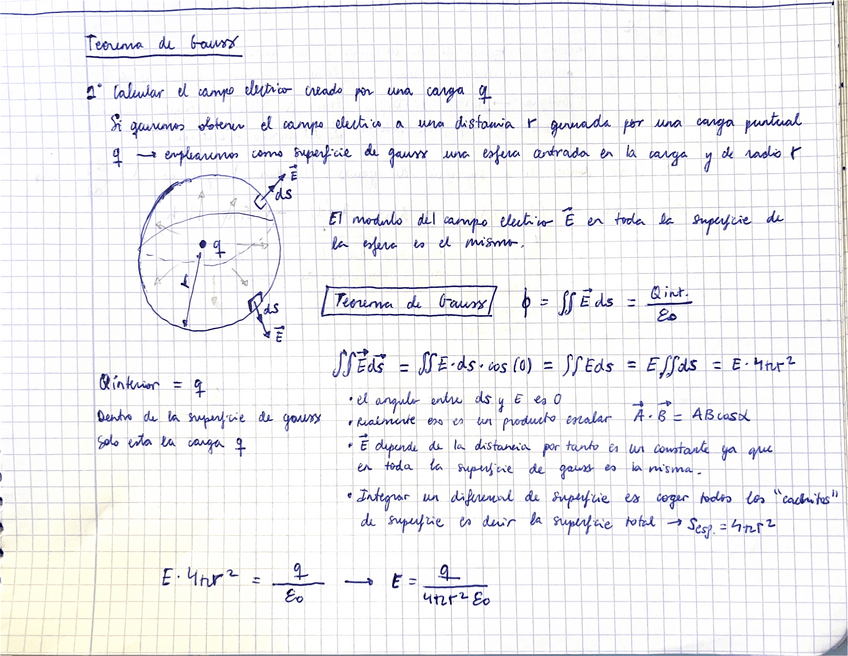 Teorema de Gauss
1° Calcular el campo electrico creado por una carga q
Si queremos obtener el campo electico a una distancia r generada por una carga puntual
q → emplearemos como superficie de gauss una esfera centrada en la carga y de radio r
E⃗
dS
q
r
dS
E⃗
El modulo del campo electrico E⃗ en toda la superficie de
la esfera es el mismo.
Teorema de Gauss ϕ = ∬ E⃗ ds = Qint. / ε0
∬ E⃗ds⃗ = ∬ E·ds·cos(0) = ∬ Eds = E∬ds = E·4πr²
Qinterior = q
Dentro de la superficie de gauss
Solo esta la carga q
• el angulo entre ds y E es 0
• Realmente eso es un producto escalar A⃗·B⃗ = AB cosα
• E⃗ depende de la distancia por tanto es un constante ya que
en toda la superficie de gauss es la misma.
• Integrar un diferencial de superficie es coger todos los "cachitos"
de superficie es decir la superficie total → Sesf. = 4πr²
E·4πr² = q / ε0 → E = q / 4πr² ε0